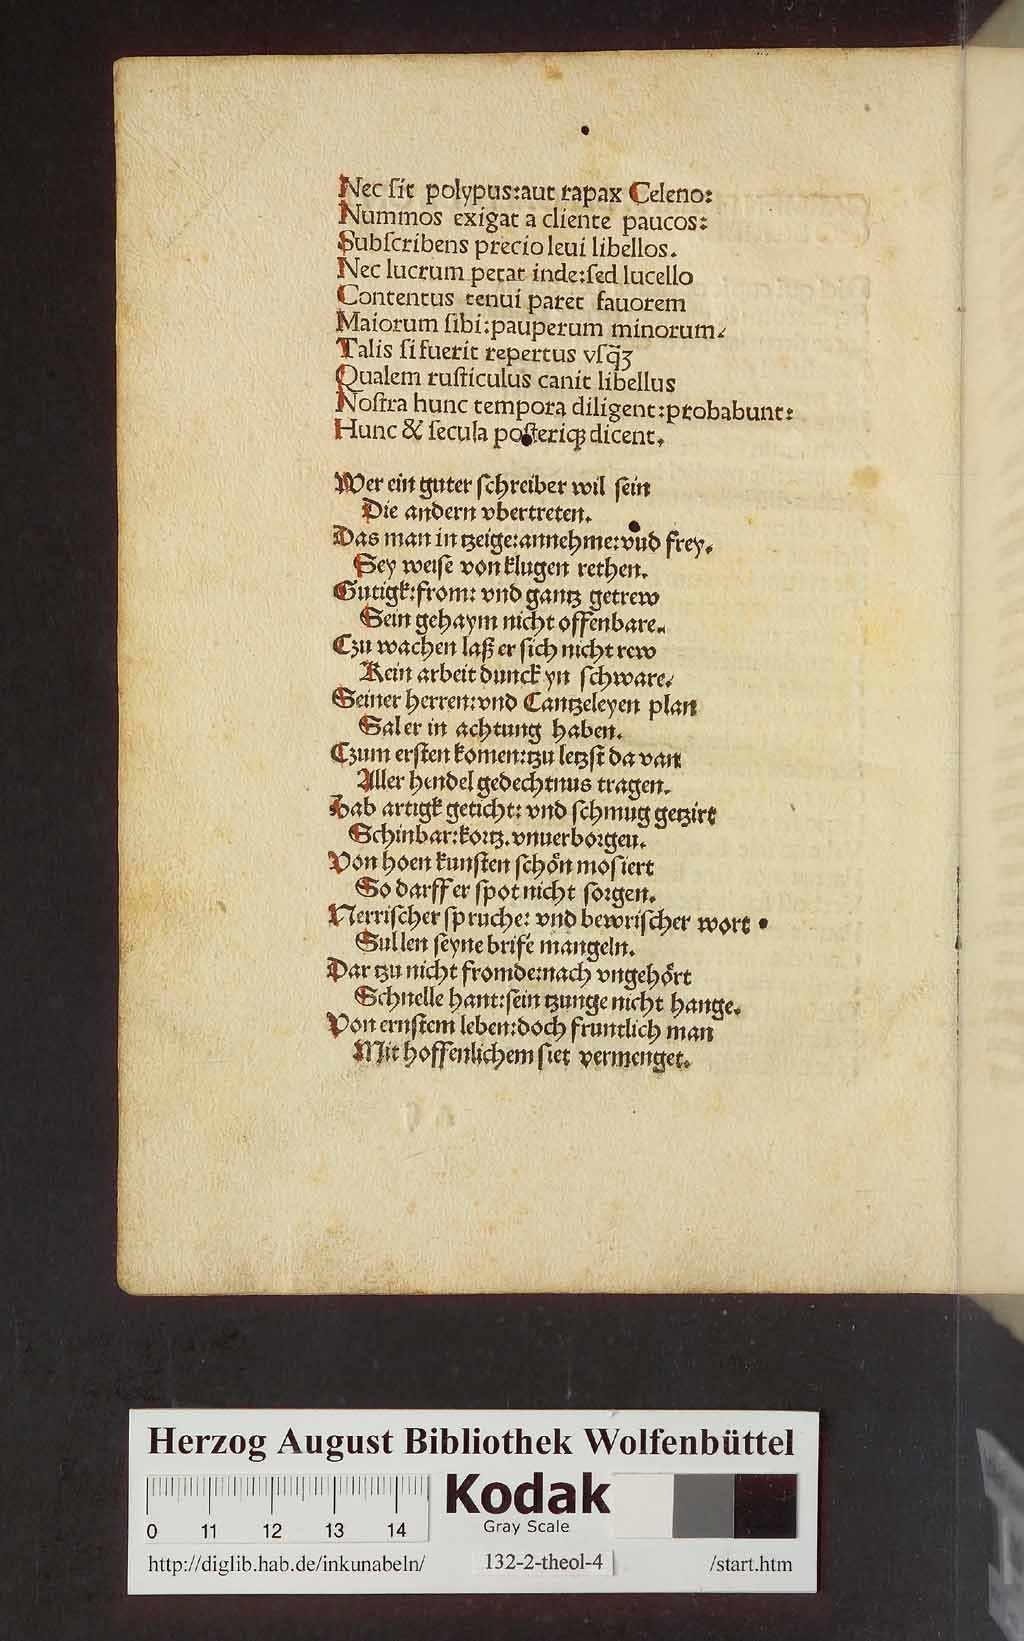 Nec ſit polypus:aut rapax Celeno:
Nummos exigat a cliente paucos:
Subſcribens precio leui libellos.
Nec lucrum petat inde:ſed lucello
Contentus tenui paret fauorem
Maiorum ſibi:pauperum minorum.
Talis ſi fuerit repertus vſq̃ꝫ
Qualem ruſticulus canit libellus
Noſtra hunc tempora diligent:probabunt:
Hunc & ſecula poſteriqꝫ dicent.
Wer ein guter ſchreiber wil ſein
Die andern vbertreten.
Das man in tzeige:annehme:vnd frey.
Sey weiſe von klugen rethen.
Gutigk:from: vnd gantz getrew
Sein gehaym nicht offenbare.
Czu wachen laß er ſich nicht rew
Kein arbeit dunck yn ſchware.
Seiner herren:vnd Cantzeleyen plan
Sal er in achtung haben.
Czum erſten komen:tzu letzſt da van
Aller hendel gedechtnus tragen.
Hab artigk geticht: vnd ſchmug getzirt
Schinbar:kortz.vnuerborgen.
Von hoen kunſten ſchön moſiert
So darff er ſpot nicht ſorgen.
Nerriſcher ſpruche: vnd bewriſcher wort
Sullen ſeyne brife mangeln.
Dar tzu nicht fromde:nach vngehört
Schnelle hant:ſein tzunge nicht hange.
Von ernſtem leben:doch fruntlich man
Mit hoffenlichem ſiet vermenget.
Herzog August Bibliothek Wolfenbüttel
Kodak
Gray Scale
0 11 12 13 14
http://diglib.hab.de/inkunabeln/ 132-2-theol-4 /start.htm